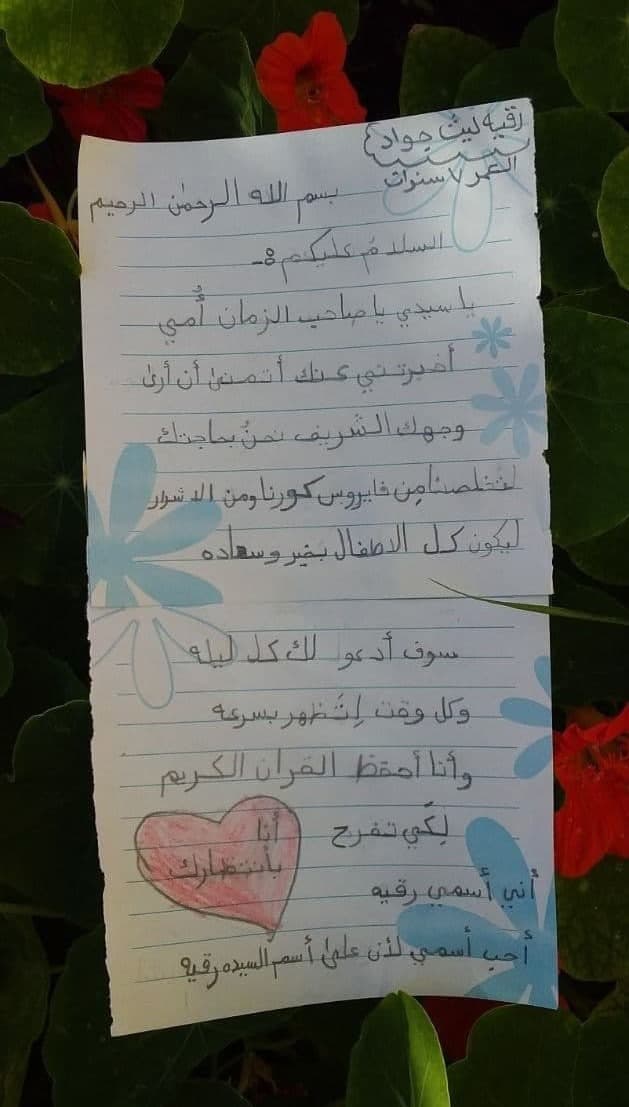 رقيه ليث جواد
العمر ٧ سنوات
بسم الله الرحمٰن الرحيم
السلام عليكم :-
يا سيدي يا صاحب الزمان أُمي
أخبرتني عنك أتمنىٰ أن أرىٰ
وجهك الشريف نحنُ بحاجتك
لتخلصنا مِن فايروس كورنا ومن الاشرار
ليكون كل الاطفال بخير وسعاده
سوف أدعو لك كل ليله
وكل وقت لِتَظهر بسرعه
وأنا أحفظ القران الكريم
لِكَي تفرح
أنا
بأنتظارك
أني أسمي رقيه
أحب أسمي لأن علىٰ أسم السيده رقيه